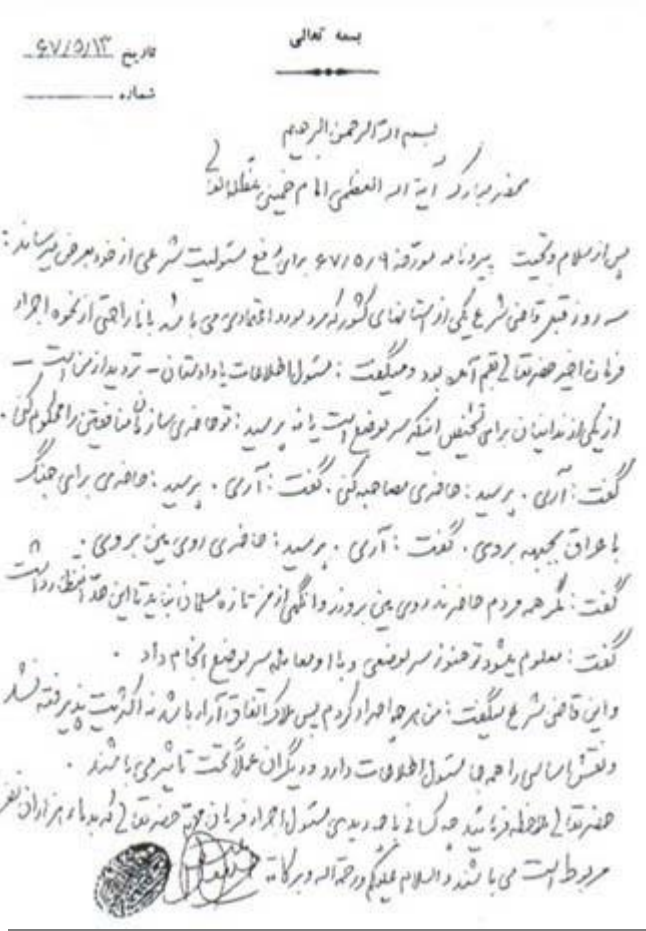 بسمه تعالی
تاریخ ۶۷/۵/۱۳
شماره
بسم الله الرحمن الرحیم
محضر مبارک آیة الله العظمی امام خمینی مد ظله العالی
پس از سلام و تحیت پیرو نامه مورخه ۶۷/۵/۹ برای رفع مسئولیت شرعی از خود بعرض میرساند:
سه روز قبل قاضی شرع یکی از استانهای کشور که مرد مورد اعتمادی می باشد با ناراحتی از نحوه اجراء
فرمان اخیر حضرتعالی بقم آمده بود و میگفت: مسئول اطلاعات یا دادستان – تردید از من است –
از یکی از زندانیان برای تشخیص اینکه سر موضع است یا نه پرسید: تو حاضری سازمان منافقین را محکوم کنی.
گفت: آری. پرسید: حاضری مصاحبه کنی. گفت: آری. پرسید: حاضری برای جنگ
با عراق بجبهه بروی. گفت: آری. پرسید: حاضری روی مین بروی.
گفت: مگر همه مردم حاضرند روی مین بروند وانگهی از من تازه مسلمان نباید تا این حد انتظار داشت
گفت: معلوم میشود تو هنوز سر موضعی و با او معامله سر موضع انجام داد.
و این قاضی شرع میگفت: من هر چه اصرار کردم پس ملاک اتفاق آراء باشد نه اکثریت پذیرفته نشد
و نقش اساسی را همه جا مسئول اطلاعات دارد و دیگران عملاً تحت تاثیر می باشند.
حضرتعالی ملاحظه فرمائید چه کسانی با چه دیدی مسئول اجراء فرمان مهم حضرتعالی که بدماء هزاران نفر
مربوط است می باشند والسلام علیکم ورحمة الله وبرکاته